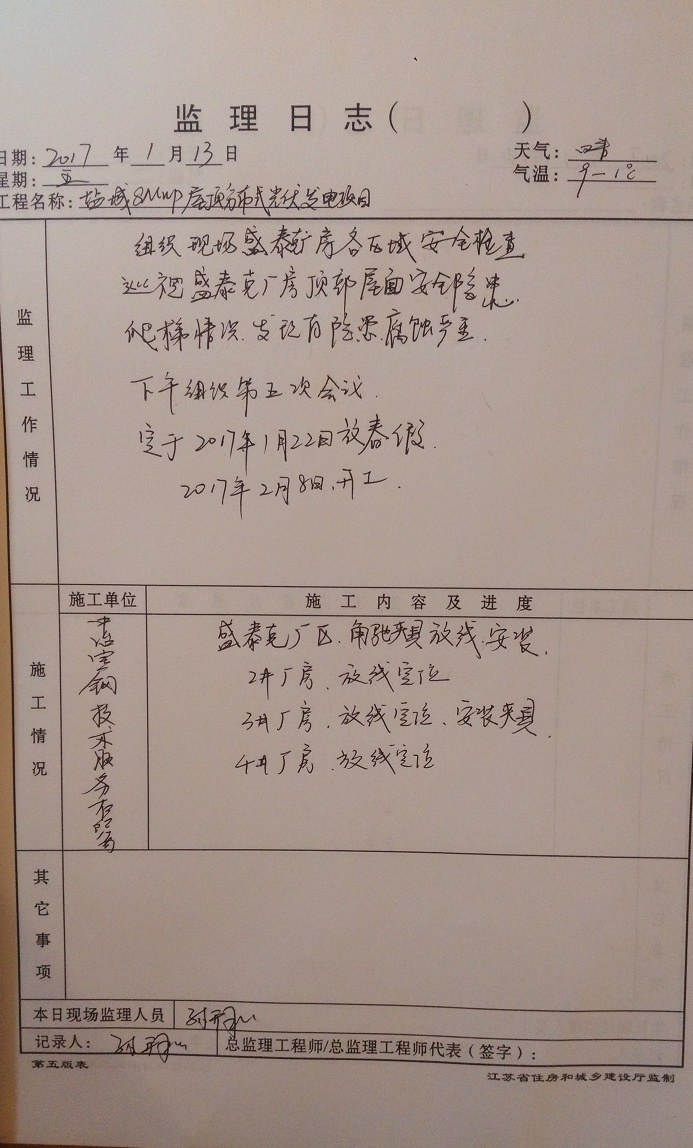 监理日志( )
日期: 2017 年 1 月 13 日
天气: 晴
星期: 五
气温: 9-1℃
工程名称: 盐城8MWP屋顶分布式光伏发电项目
监理工作情况
组织现场盛泰克厂房各区域安全检查
巡视盛泰克厂房顶部屋面安全隐患.
爬梯情况.发现有隐患.腐蚀严重.
下午组织第五次会议.
定于2017年1月22日放春假.
2017年2月8日.开工.
施工单位
施工内容及进度
施工情况
宝钢技术服务有限公司
盛泰克厂区.角驰夹具放线.安装.
2#厂房.放线定位
3#厂房.放线定位.安装夹具.
4#厂房.放线定位
其它事项
本日现场监理人员
记录人:
总监理工程师/总监理工程师代表(签字):
第五版表
江苏省住房和城乡建设厅监制